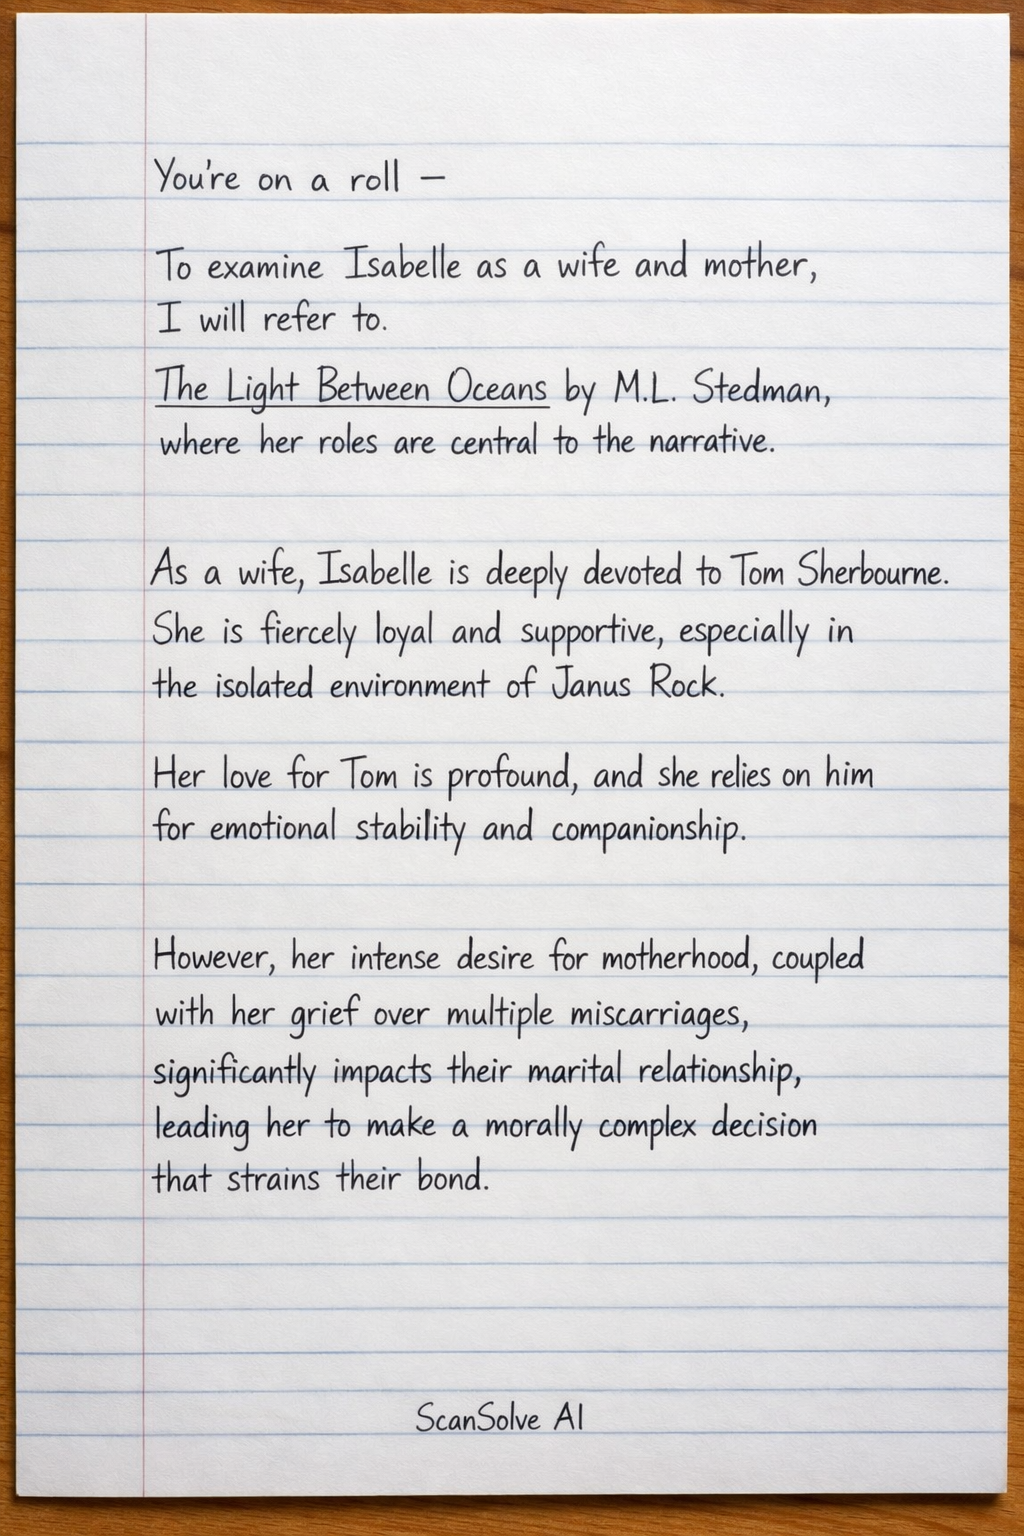 You're on a roll —
To examine Isabelle as a wife and mother,
I will refer to.
The Light Between Oceans by M.L. Stedman,
where her roles are central to the narrative.
As a wife, Isabelle is deeply devoted to Tom Sherbourne.
She is fiercely loyal and supportive, especially in
the isolated environment of Janus Rock.
Her love for Tom is profound, and she relies on him
for emotional stability and companionship.
However, her intense desire for motherhood, coupled
with her grief over multiple miscarriages,
significantly impacts their marital relationship,
leading her to make a morally complex decision
that strains their bond.
ScanSolve AI